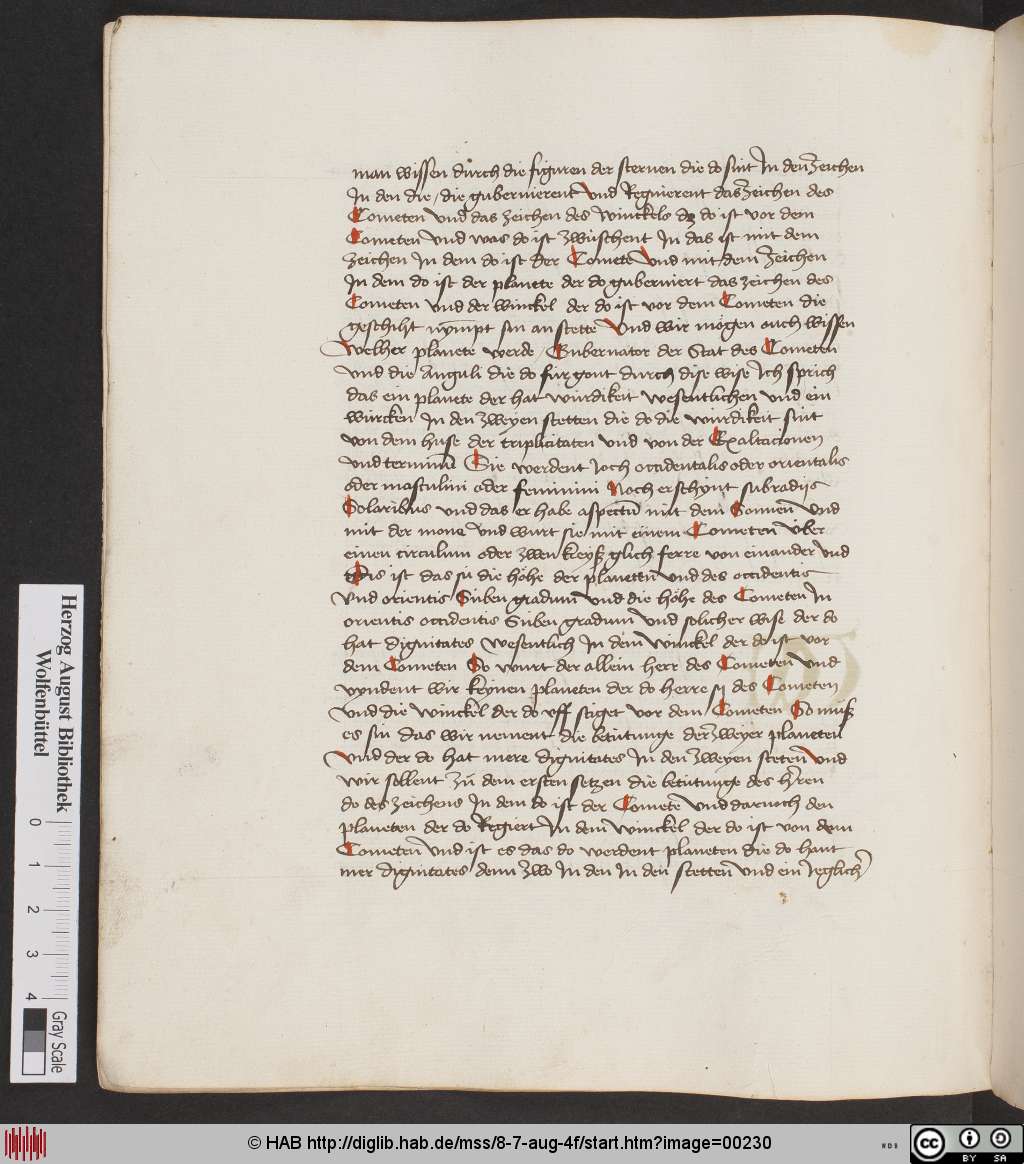 man wissen durch die figuren der sternen die do sint In den zeichen
In den die / die gubernierent Vnd Regnierent das zeichen des
Cometen vnd das zeichen des winckels dz do ist vor dem
Cometen vnd was do ist zwüschent In das ist mit dem
zeichen In dem do ist der Comete Vnd mit dem zeichen
In dem do ist der planete der do guberniert das zeichen des
Cometen vnd der winckel der do ist vor dem Cometen die
geschiht nympt sin an stette Vnd wir mögen ouch wissen
Welher planete werde / Gubernator der Stat des Cometen
vnd die Anguli die do für gont durch dise wise Ich sprich
das ein planete der hat wirdikeit wesentlichen vnd ein
würcken In den zweyen stetten die do die wirdikeit sint
von dem huse der triplicitaten vnd von der Exaltacionen
vnd termini Sie werdent Joch occidentalis oder orientalis
oder masculini oder feminini Noch erschynt subradijs
Solaribus vnd das er habe aspectū mit dem Sonnen vnd
mit der mone vnd wurt sie mit einem Cometen über
einen circulum oder zwen kreyß glich ferre von einander vnd
Dis ist das sü die höhe der planetten vnd des occidentis
vnd orientis Süben gradum vnd die höhe des Cometen In
orientis occidentis Süben gradum vnd solicher wise der do
hat dignitates wesentlich In dem winckel der do ist vor
dem Cometen So wurt der allein herr des Cometen vnd
vyndent wir keynen planeten der do herre sy des Cometen
vnd die winckel der do vff stiget vor dem Cometen So müß
es sin das wir nement die betütunge der zweyer planeten
Vnd der do hat mere dignitates In den zweyen steten Vnd
wir sollent zü dem ersten setzen die betütunge des h'ren
do des zeichens In dem do ist der Comete vnd darnoch den
planeten der do Regiert In dem winckel der do ist von dem
Cometen vnd ist es das do werdent planeten die do hant
mer dignitates denn zwo In den In den stetten vnd ein ieglich'
Herzog August Bibliothek
Wolfenbüttel
0 1 2 3 4
Gray Scale
© HAB http://diglib.hab.de/mss/8-7-aug-4f/start.htm?image=00230
WDB
cc BY SA